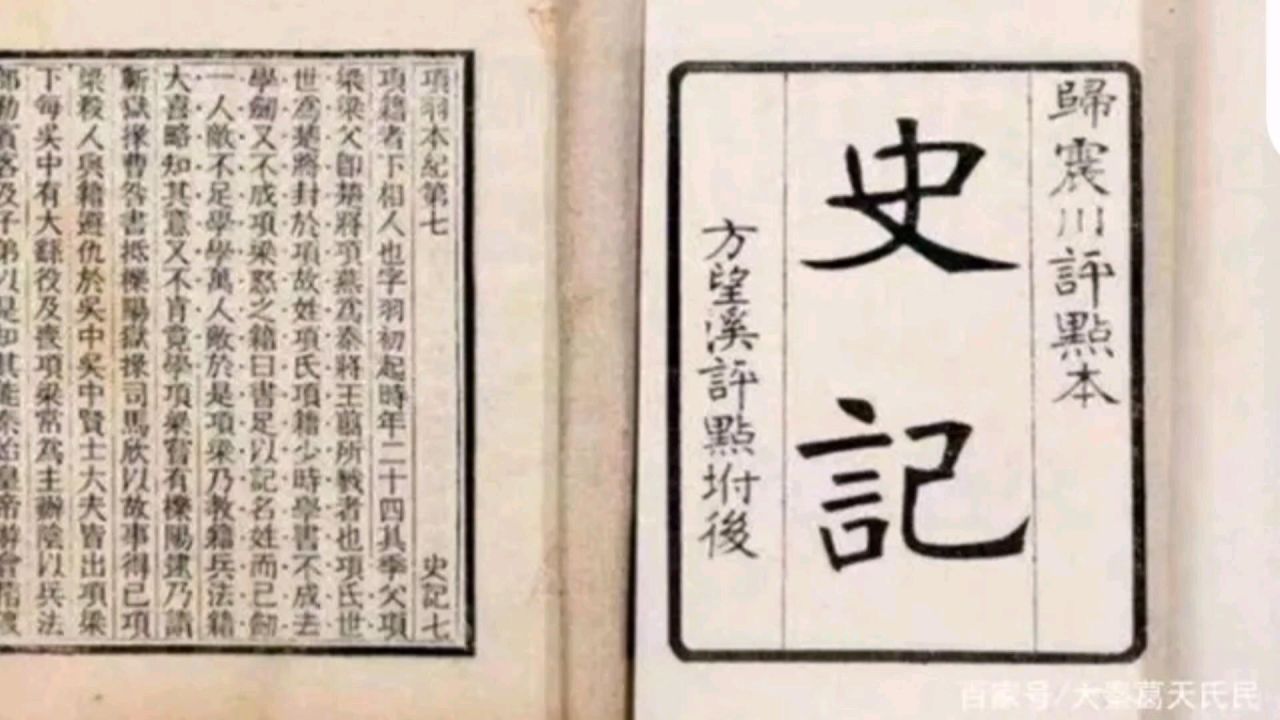 歸震川評點本
史記
方望溪評點坿後
項羽本紀第七 史記七
項籍者下相人也字羽初起時年二十四其季父項
梁梁父卽楚將項燕爲秦將王翦所戮者也項氏世
世爲楚將封於項故姓項氏項籍少時學書不成去
學劍又不成項梁怒之籍曰書足以記名姓而已劍
一人敵不足學學萬人敵於是項梁乃教籍兵法籍
大喜略知其意又不肯竟學項梁嘗有櫟陽逮乃請
蘄獄掾曹咎書抵櫟陽獄掾司馬欣以故事得已項
梁殺人與籍避仇於吳中吳中賢士大夫皆出項梁
下每吳中有大繇役及喪項梁常爲主辦陰以兵法
部勒賓客及子弟以是知其能秦始皇帝游會稽渡
百家号/大秦葛天氏民